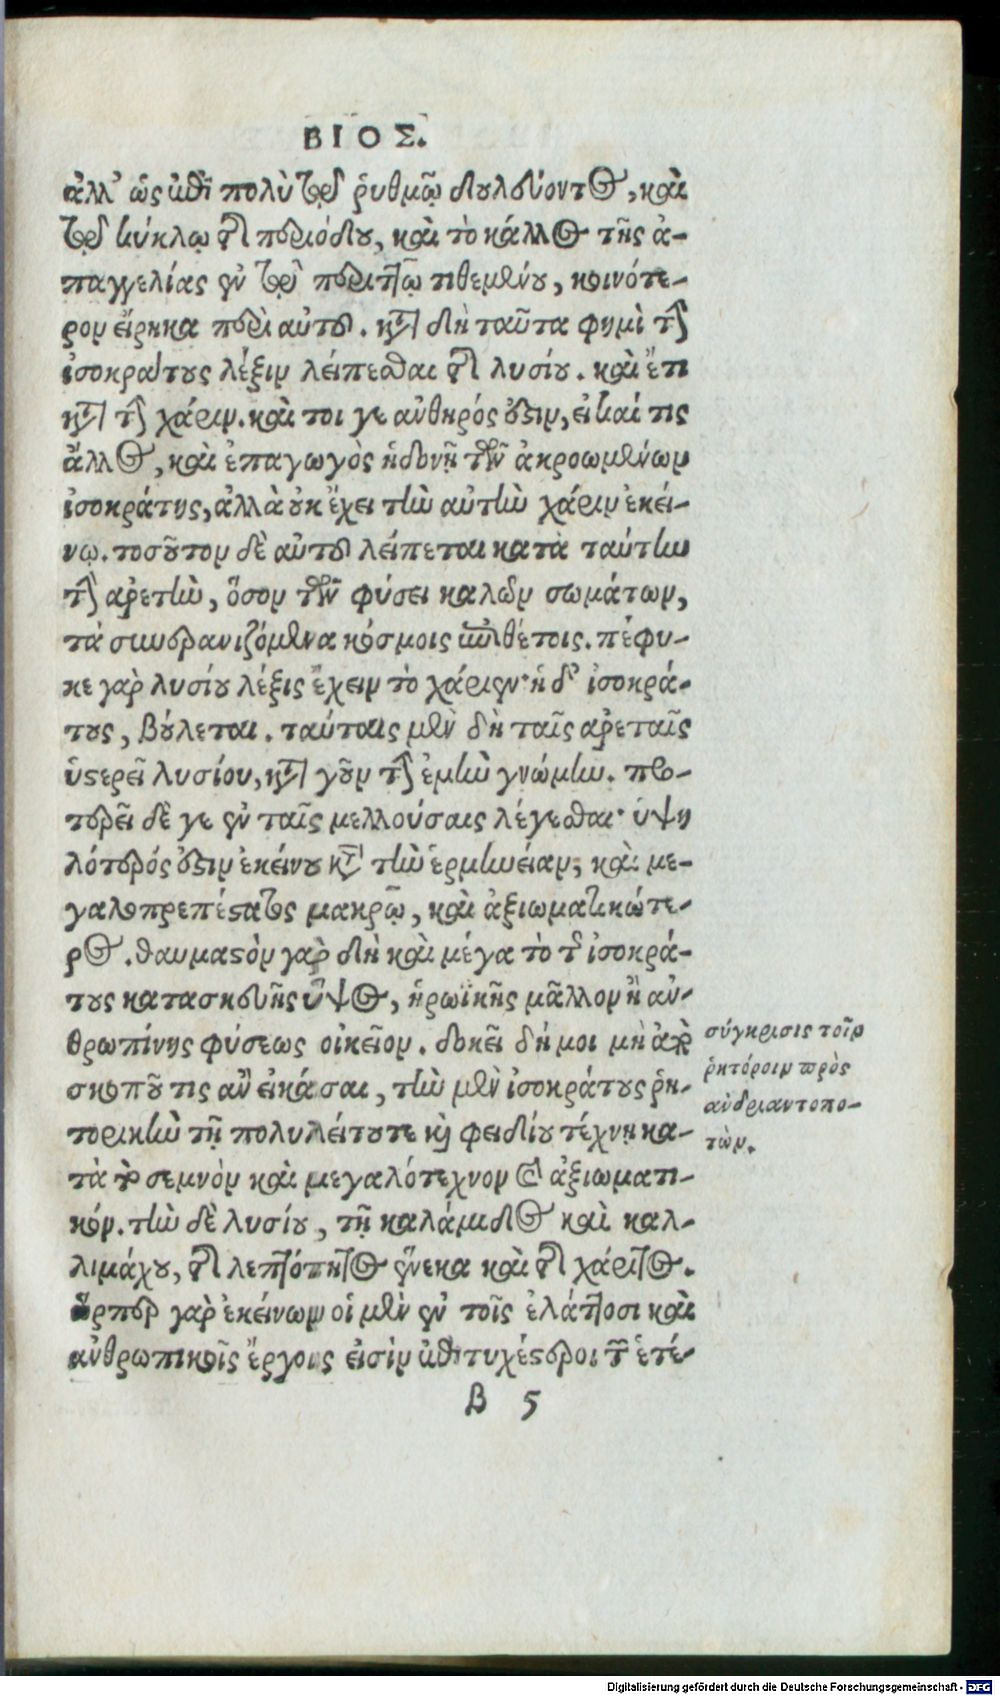 ΒΙΟΣ.
ἀλλ' ὡς ἐπὶ πολὺ τῷ ῥυθμῷ δουλεύοντος, καὶ
τῷ κύκλῳ τῆς περιόδου, καὶ τὸ κάλλος τῆς ἀ-
παγγελίας ἐν τῷ περιττῷ τιθεμένου, κοινότε-
ρον εἴρηκα περὶ αὐτοῦ. κατὰ δὴ ταῦτα φημὶ τὴν
ἰσοκράτους λέξιν λείπεσθαι τῆς λυσίου. καὶ ἔτι
κατὰ τὴν χάριν. καὶ τοι γε ἀνθηρός ἐστιν, εἰ καί τις
ἄλλος, καὶ ἐπαγωγὸς ἡδονῇ τῶν ἀκροωμένων
ἰσοκράτης, ἀλλὰ οὐκ ἔχει τὴν αὐτὴν χάριν ἐκεί-
νῳ. τοσοῦτον δὲ αὐτοῦ λείπεται κατὰ ταύτην
τὴν ἀρετὴν, ὅσον τῶν φύσει καλῶν σωμάτων,
τὰ συνερανιζόμενα κόσμοις ἐπιθέτοις. πέφυ-
κε γὰρ λυσίου λέξις ἔχειν τὸ χάριεν· ἡ δ' ἰσοκρά-
τους, βούλεται. ταύταις μὲν δὴ ταῖς ἀρεταῖς
ὑστερεῖ λυσίου, κατὰ γοῦν τὴν ἐμὴν γνώμην. προ-
τερεῖ δέ γε ἐν ταῖς μελλούσαις λέγεσθαι· ὑψη
λότερός ἐστιν ἐκείνου κατὰ τὴν ἑρμηνείαν, καὶ με-
γαλοπρεπέστατος μακρῷ, καὶ ἀξιωματικώτε-
ρος. θαυμαστὸν γὰρ δὴ καὶ μέγα τὸ τῆς ἰσοκρά-
τους κατασκευῆς ὕψος, ἡρωϊκῆς μᾶλλον ἢ ἀν-
θρωπίνης φύσεως οἰκεῖον. δοκεῖ δή μοι μὴ ἀπὸ
σκοποῦ τις ἂν εἰκάσαι, τὴν μὲν ἰσοκράτους ῥη-
τορικὴν τῇ πολυλείτου τε καὶ φειδίου τέχνῃ κα-
τὰ τὸ σεμνὸν καὶ μεγαλότεχνον καὶ ἀξιωματι-
κόν. τὴν δὲ λυσίου, τῇ καλάμιδος καὶ καλ-
λιμάχου, τῆς λεπτότητος ἕνεκα καὶ τῆς χάριτος.
ὥσπερ γὰρ ἐκείνων οἱ μὲν ἐν τοῖς ἐλάττοσι καὶ
ἀνθρωπικοῖς ἔργοις εἰσὶν ἐπιτυχέστεροι τῶν ἑτέ-
Β 5
σύγκρισις τοῖν
ῥητόροιν πρὸς
ἀνδριαντοπο-
τῶν.
Digitalisierung gefördert durch die Deutsche Forschungsgemeinschaft - DFG